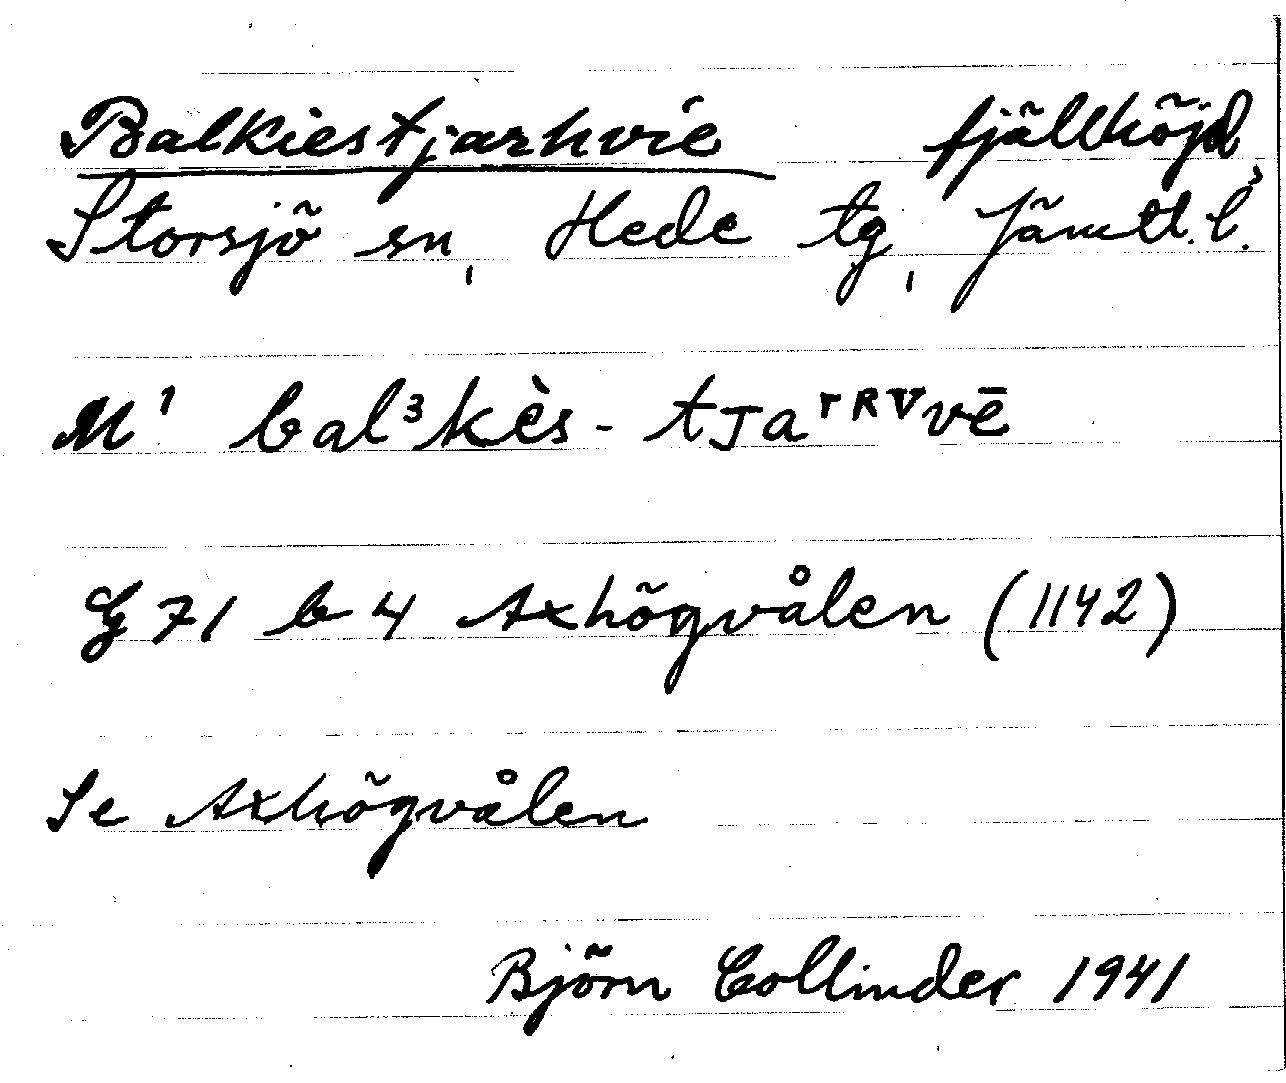 Balkiestjarhvie fjällhöjd,
Storsjö sn, Hede tg, Jämtl. l.
M¹ bal³kès- tᴊaʳᴿⱽvē
G 71 b 4 Axhögvålen (1142)
Se Axhögvålen
Björn Collinder 1941